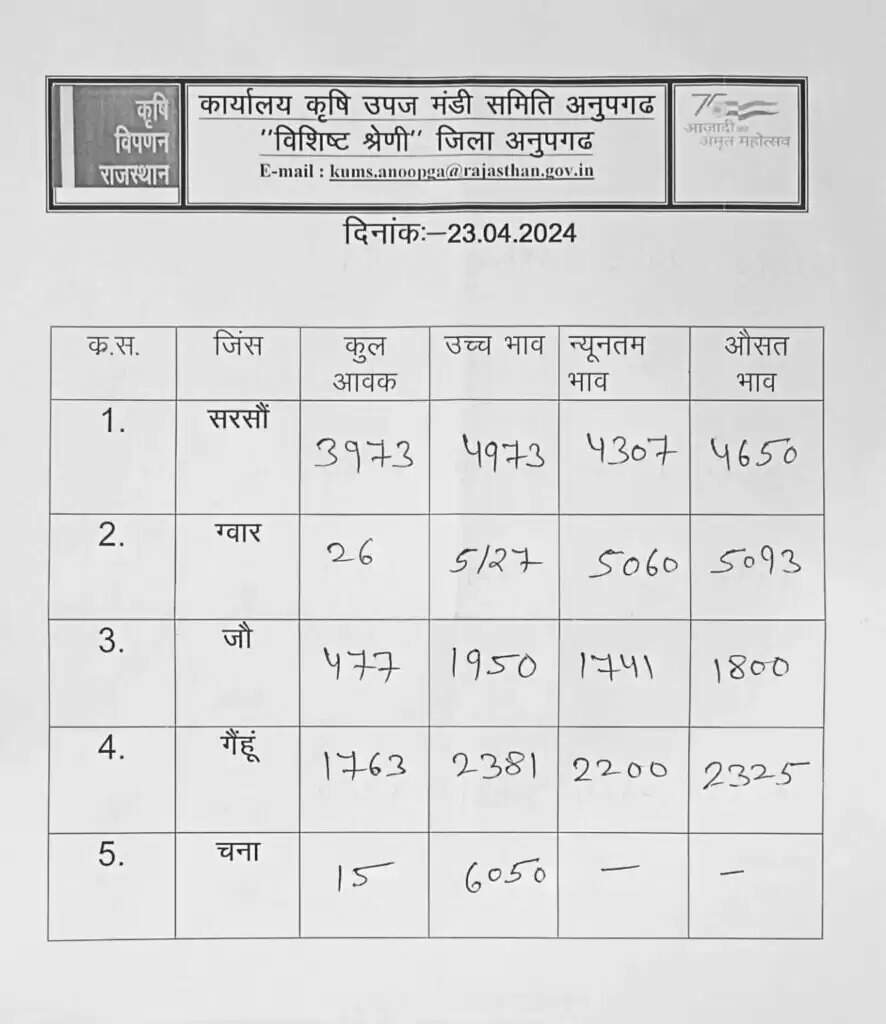 कृषि
विपणन
राजस्थान
कार्यालय कृषि उपज मंडी समिति अनुपगढ
"विशिष्ट श्रेणी" जिला अनुपगढ
E-mail : kums.anoopga@rajasthan.gov.in
आज़ादी का
अमृत महोत्सव
दिनांकः–23.04.2024
क.स. जिंस कुल आवक उच्च भाव न्यूनतम भाव औसत भाव
1. सरसौं 3973 4973 4307 4650
2. ग्वार 26 5127 5060 5093
3. जौ 477 1950 1741 1800
4. गैंहूं 1763 2381 2200 2325
5. चना 15 6050 — —